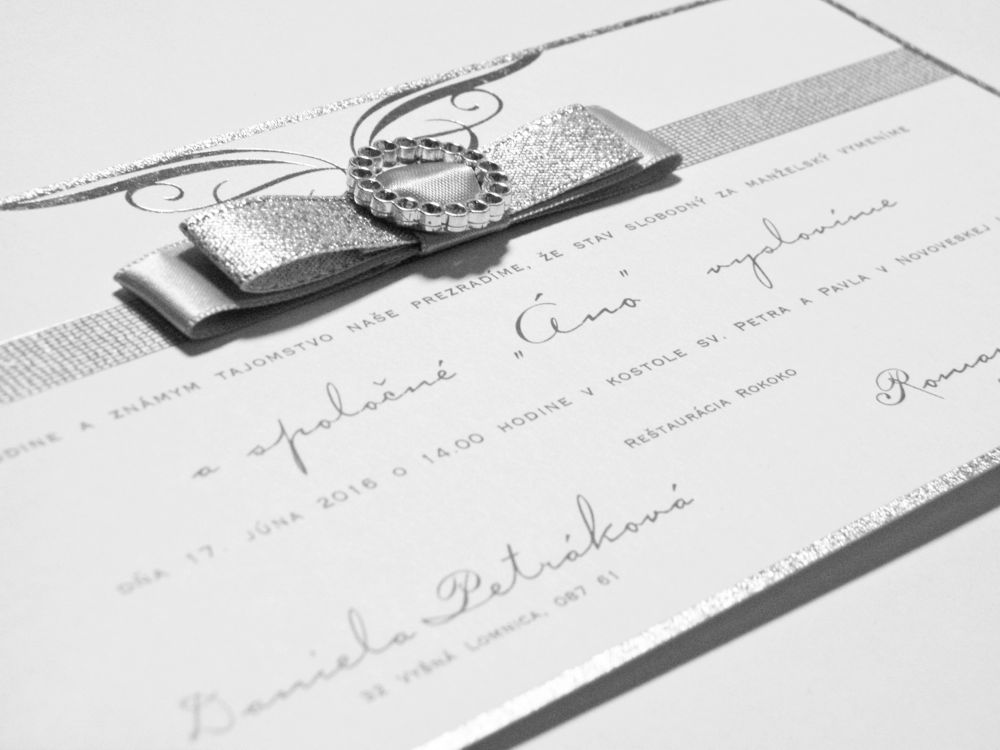 A ZNÁMYM TAJOMSTVO NAŠE PREZRADÍME, ŽE STAV SLOBODNÝ ZA MANŽELSKÝ VYMENÍME
a spoločné „Áno” vyslovíme
DŇA 17. JÚNA 2016 O 14.00 HODINE V KOSTOLE SV. PETRA A PAVLA V NOVOVESKEJ
REŠTAURÁCIA ROKOKO
Daniela Petráková
VYŠNÁ LOMNICA, 087 61